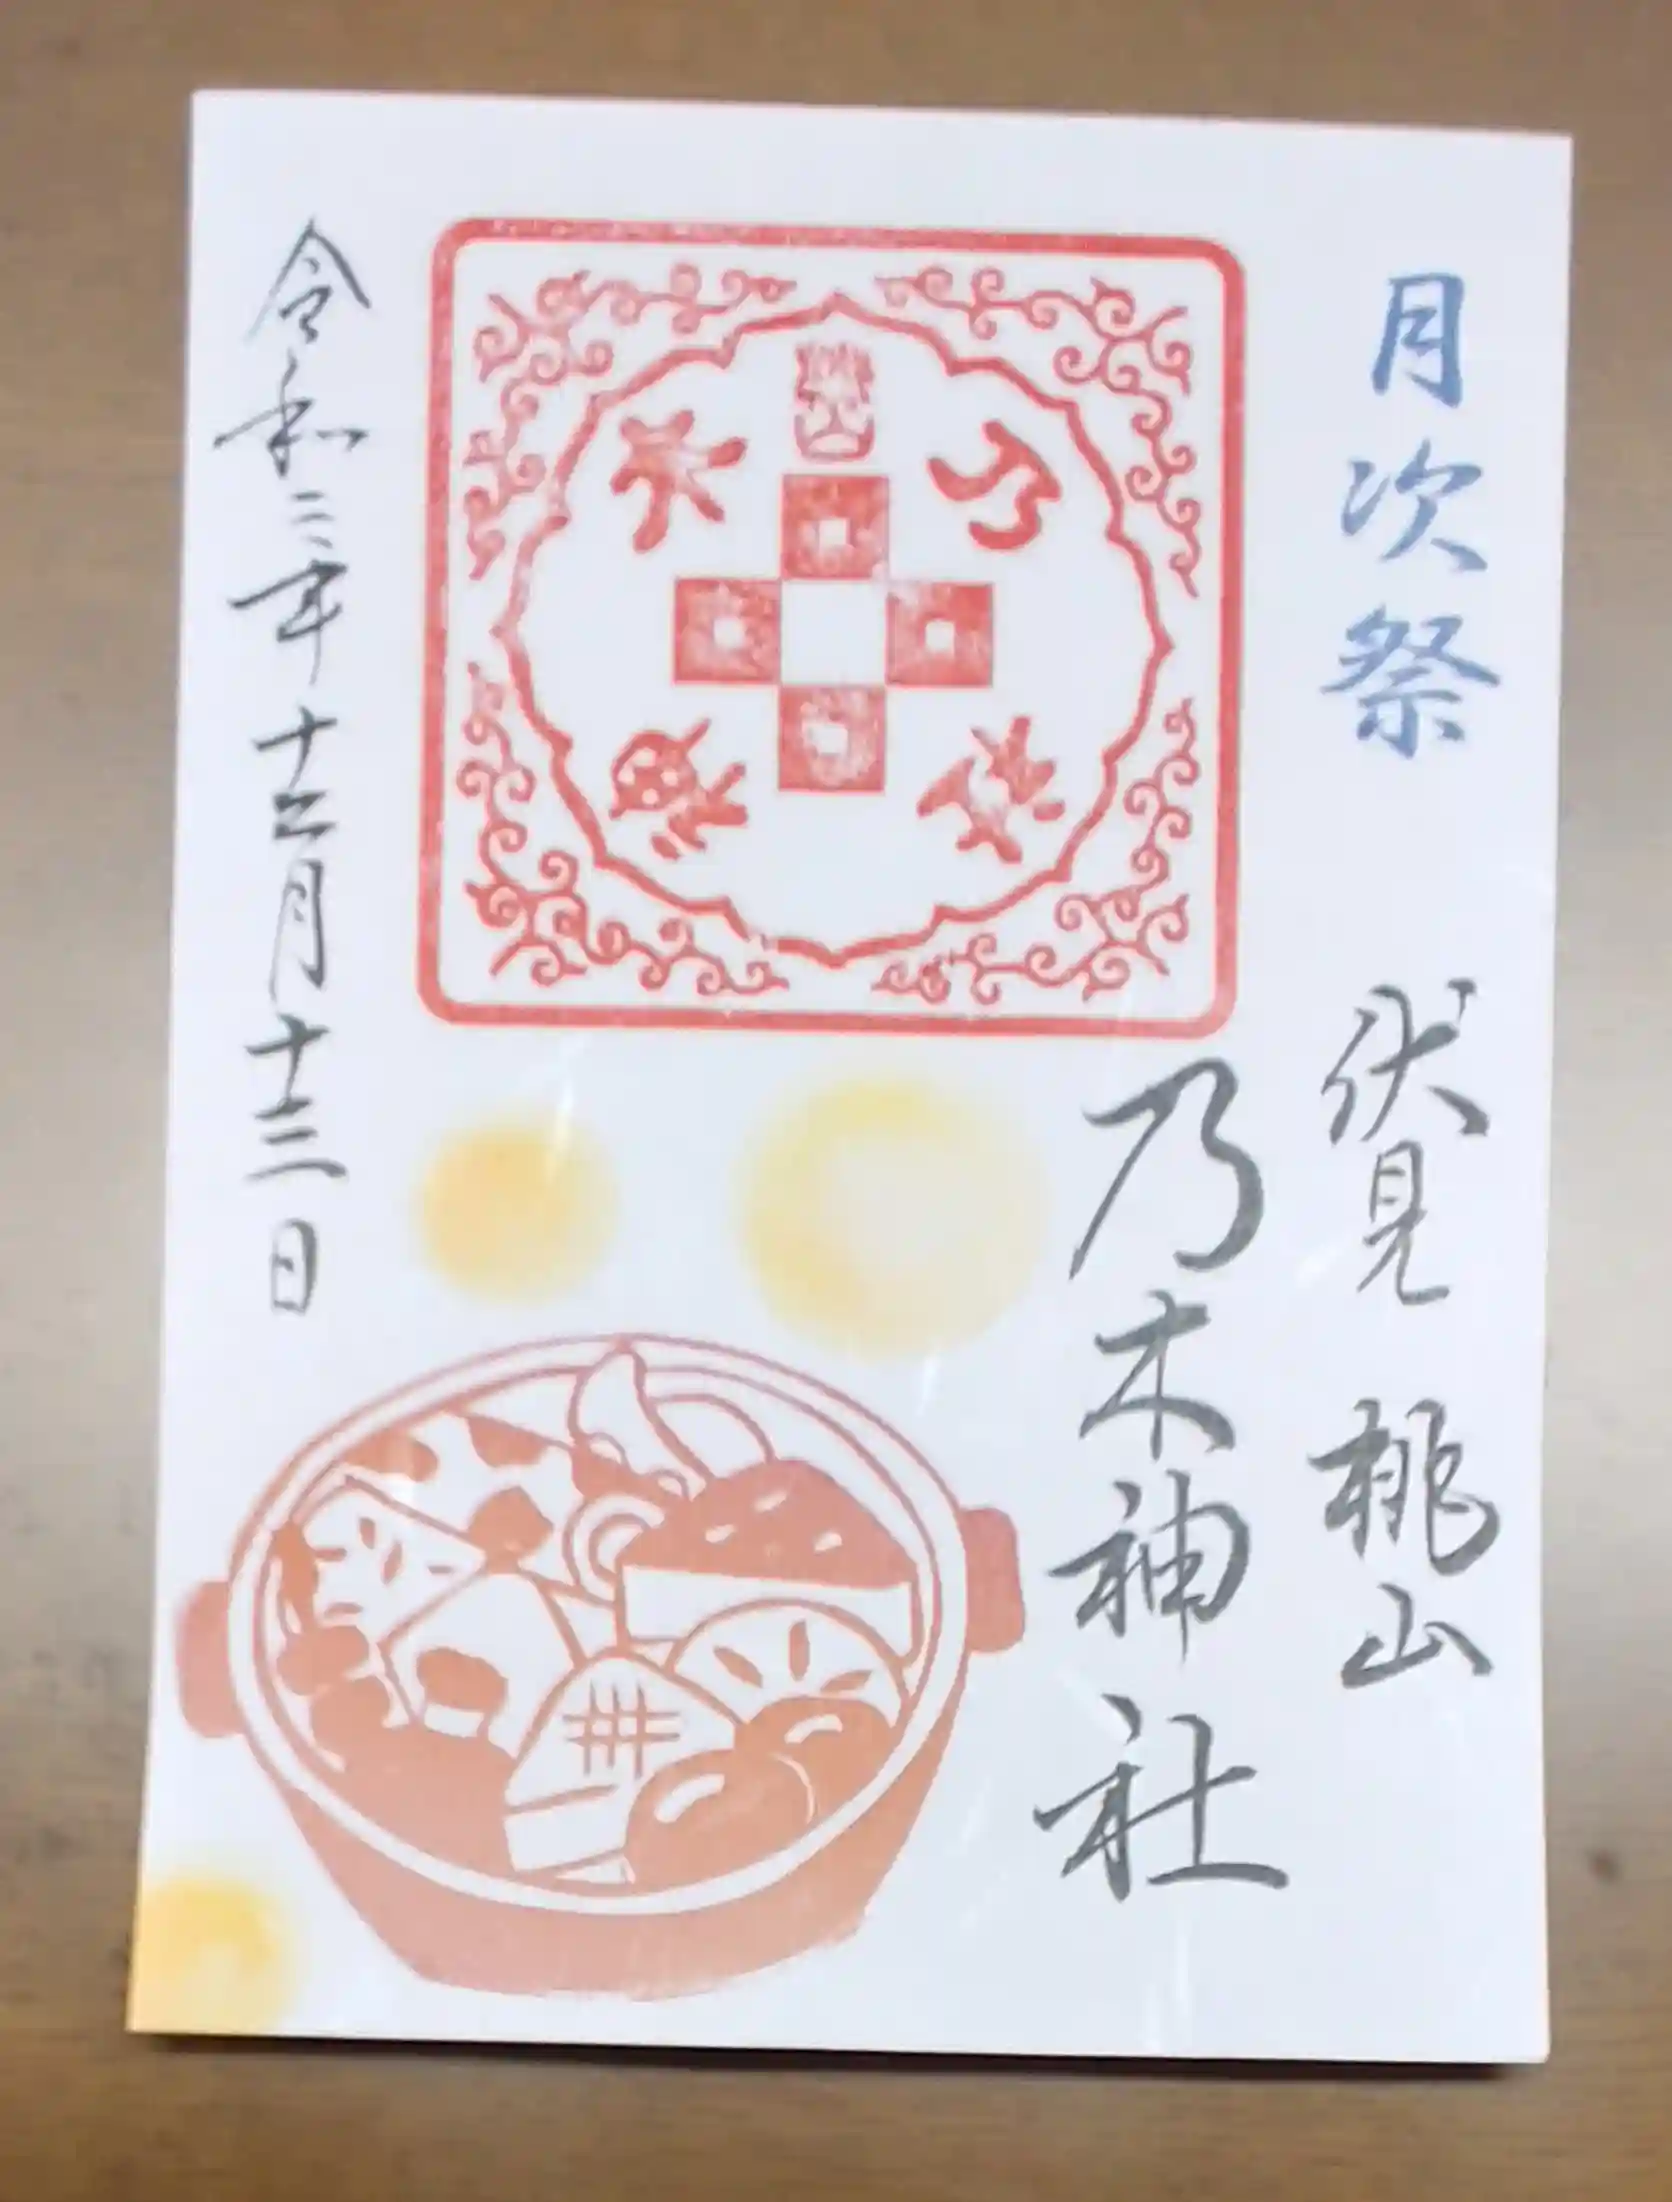 月次祭
伏見 桃山
乃木神社
令和三年十二月十三日